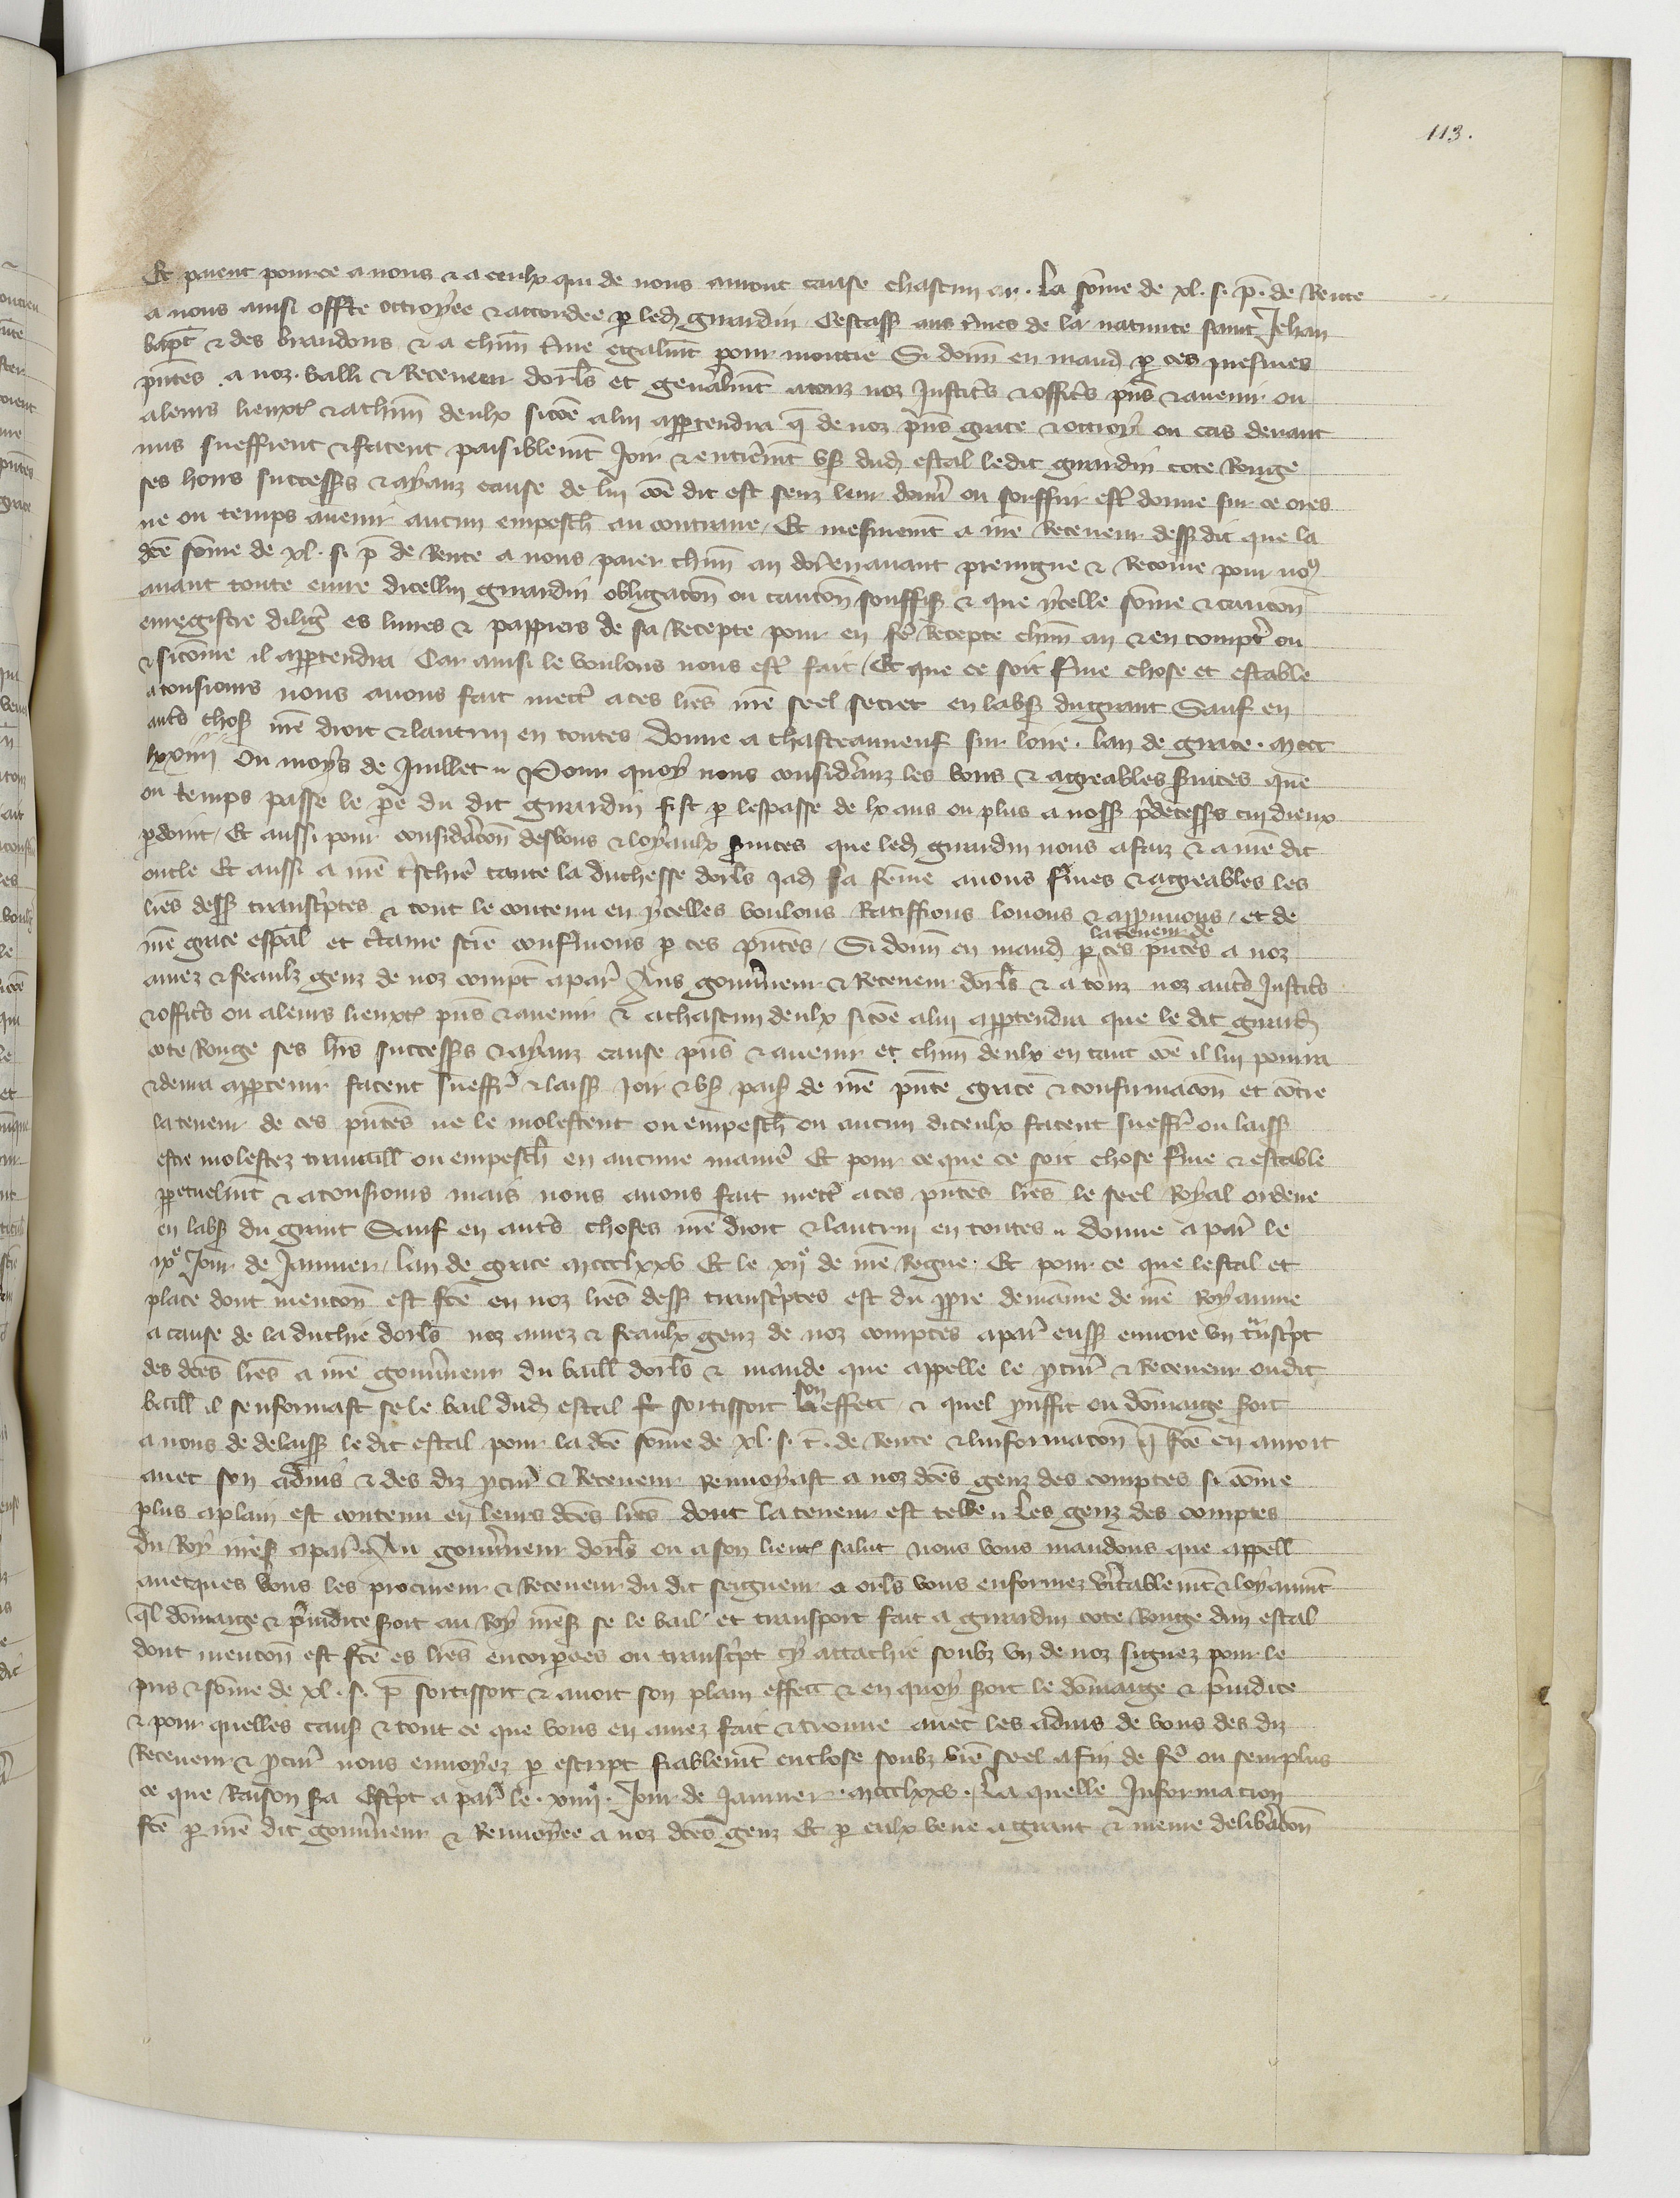 113.
Et paient pource a nous & a ceulx qui de nous auront cause chascun an. La some de xl. s. p. de Rente
a nous ainsi offte octroyee & accordee p led girardin Cestass aus tmes de la natiuite saint Jehan
bapt & des brandons & a chun tme egalmt pour moittie Si donn en mand p ces mesmes
pntes a noz bailli & Receueur dorls et genalmt a touz noz Justics & offics pns & auenir ou
a leurs lieuxt & a chun deulx sicoe a lui apptendra q de noz pns grace & ottroy ou cas deuant
mis sueffrent & facent paisiblemt Joir & entieremt vs dud estal ledit girardin cote Rouge
ses hoirs successrs & ayanz cause de lui coe dit est senz leur donn ou souffrir est donne sur ce ores
ne ou temps auenir aucun empesch au contraire Et mesmemt a nre Receueur dessdit que la
dce some de xl. s. p de Rente a nous paier chun an dorenauant preingne & Recoiue pour nous
auant toute euure dicellui girardin obligacon ou caucon souffis & que ycelle some & caucon
enregistre dilig es liures & pappiers de sa Recepte pour en fe Recepte chun an & en compt ou
& sicome il apptendra Car ainsi le voulons nous est fait Et que ce soit fme chose et estable
a tousiours nous auons fait mett a ces lres nre seel secret en labs du grant Sauf en
auts chos nre droit & lautruy en toutes Donne a chasteauneuf sur loire. lan de grace. mccc
lxxiiij Ou moys de Juillet Pour quoy nous consideranz les bons & agreables suices que
ou temps passe le pe du dit girardin fist p lespasse de lx ans ou plus a noss pdecessrs cui dieux
pdoint Et aussi pour consideracon des bons & loyaulx suices que led girardin nous a faiz & a nre dit
oncle Et aussi a nre tschiere tante la duchesse dorls iad sa feme auons fmes & agreables les
lres dess transcriptes & tout le contenu en ycelles voulons Ratiffions louons & appuuons et de
nre grace espal et ctaine scie confmons p ces pntes Si donn en mand p la teneur de ces pntes a noz
amez & feaulz genz de noz compt a par Aus gouuneur & Receueur dorls & a touz noz auts Justics
& offics ou a leurs lieuxt pns & auenir & a chascun deulx sicoe a lui apptendra que le dit girard
cote Rouge ses hrs successrs & ayanz cause pns & auenir et chun deulx en tant coe il lui pourra
& deura apptenir facent sueffr & laiss Joir & vs pais de nre pnte grace & confirmacon et cotre
la teneur de ces pntes ne le molestent ou empesch ou aucun diceulx facent sueffr ou laiss
estre molestez trauaill ou empesch en aucune manie Et pour ce que ce soit chose fme & estable
ppetuelmt & a tousiours mais nous auons fait mett a ces pntes lres le seel Royal ordene
en labs du grant Sauf en auts choses nre droit & lautruy en toutes Donne a par le
ixe Jour de Januier lan de grace mccclxxv Et le xije de nre Regne. Et pour ce que lestal et
place dont mencon est fce en noz lres dess transcriptes est du ppre demaine de nre Royaume
a cause de la duchie dorls noz amez & feaulx genz de noz comptes a par eusss enuoie vn transcript
des dces lres a nre gouuneur du baill dorls & mande que appelle le pcur & Receueur oudit
baill il senformast se le bail dud estal sortissoit son effect & quel prouffit ou domaige soit
a nous de delaiss le dit estal pour la dce some de xl. s. t. de Rente & linformacon q fce en auroit
auec son aduis & des diz pcur & Receueur Renuoyast a noz dces genz des comptes si come
plus a plain est contenu en leurs dces lres dont la teneur est telle Les genz des comptes
du Roy nres a par Au gouuneur dorls ou a son lieut salut nous vous mandons que appell
auecques vous les procureur & Receueur du dit seigneur a orls vous enformez vitablemt & loyaumt
ql domaige & preiudice soit au Roy nres se le bail et transport fait a girardin cote Rouge dun estal
dont mencon est fce es lres encorporees ou transcript cy attachie soubz vn de noz signez pour le
pris & some de xl. s. p sortissoit & auoit son plain effect & en quoy soit le domaige & preiudice
& pour quelles caus & tout ce que vous en aurez fait & trouue auec les aduis de vous des diz
Receueur & pcur nous enuoyez p escript feablemt enclose soubz vre seel afin de fe ou semplus
ce que Raison sa Escript a par le. xiiije. Jour de Januier. mccclxxv. La quelle Informacion
fce p nre dit gouuneur & Renuoyee a noz dces genz Et p eulx veue a grant & meure delibacon